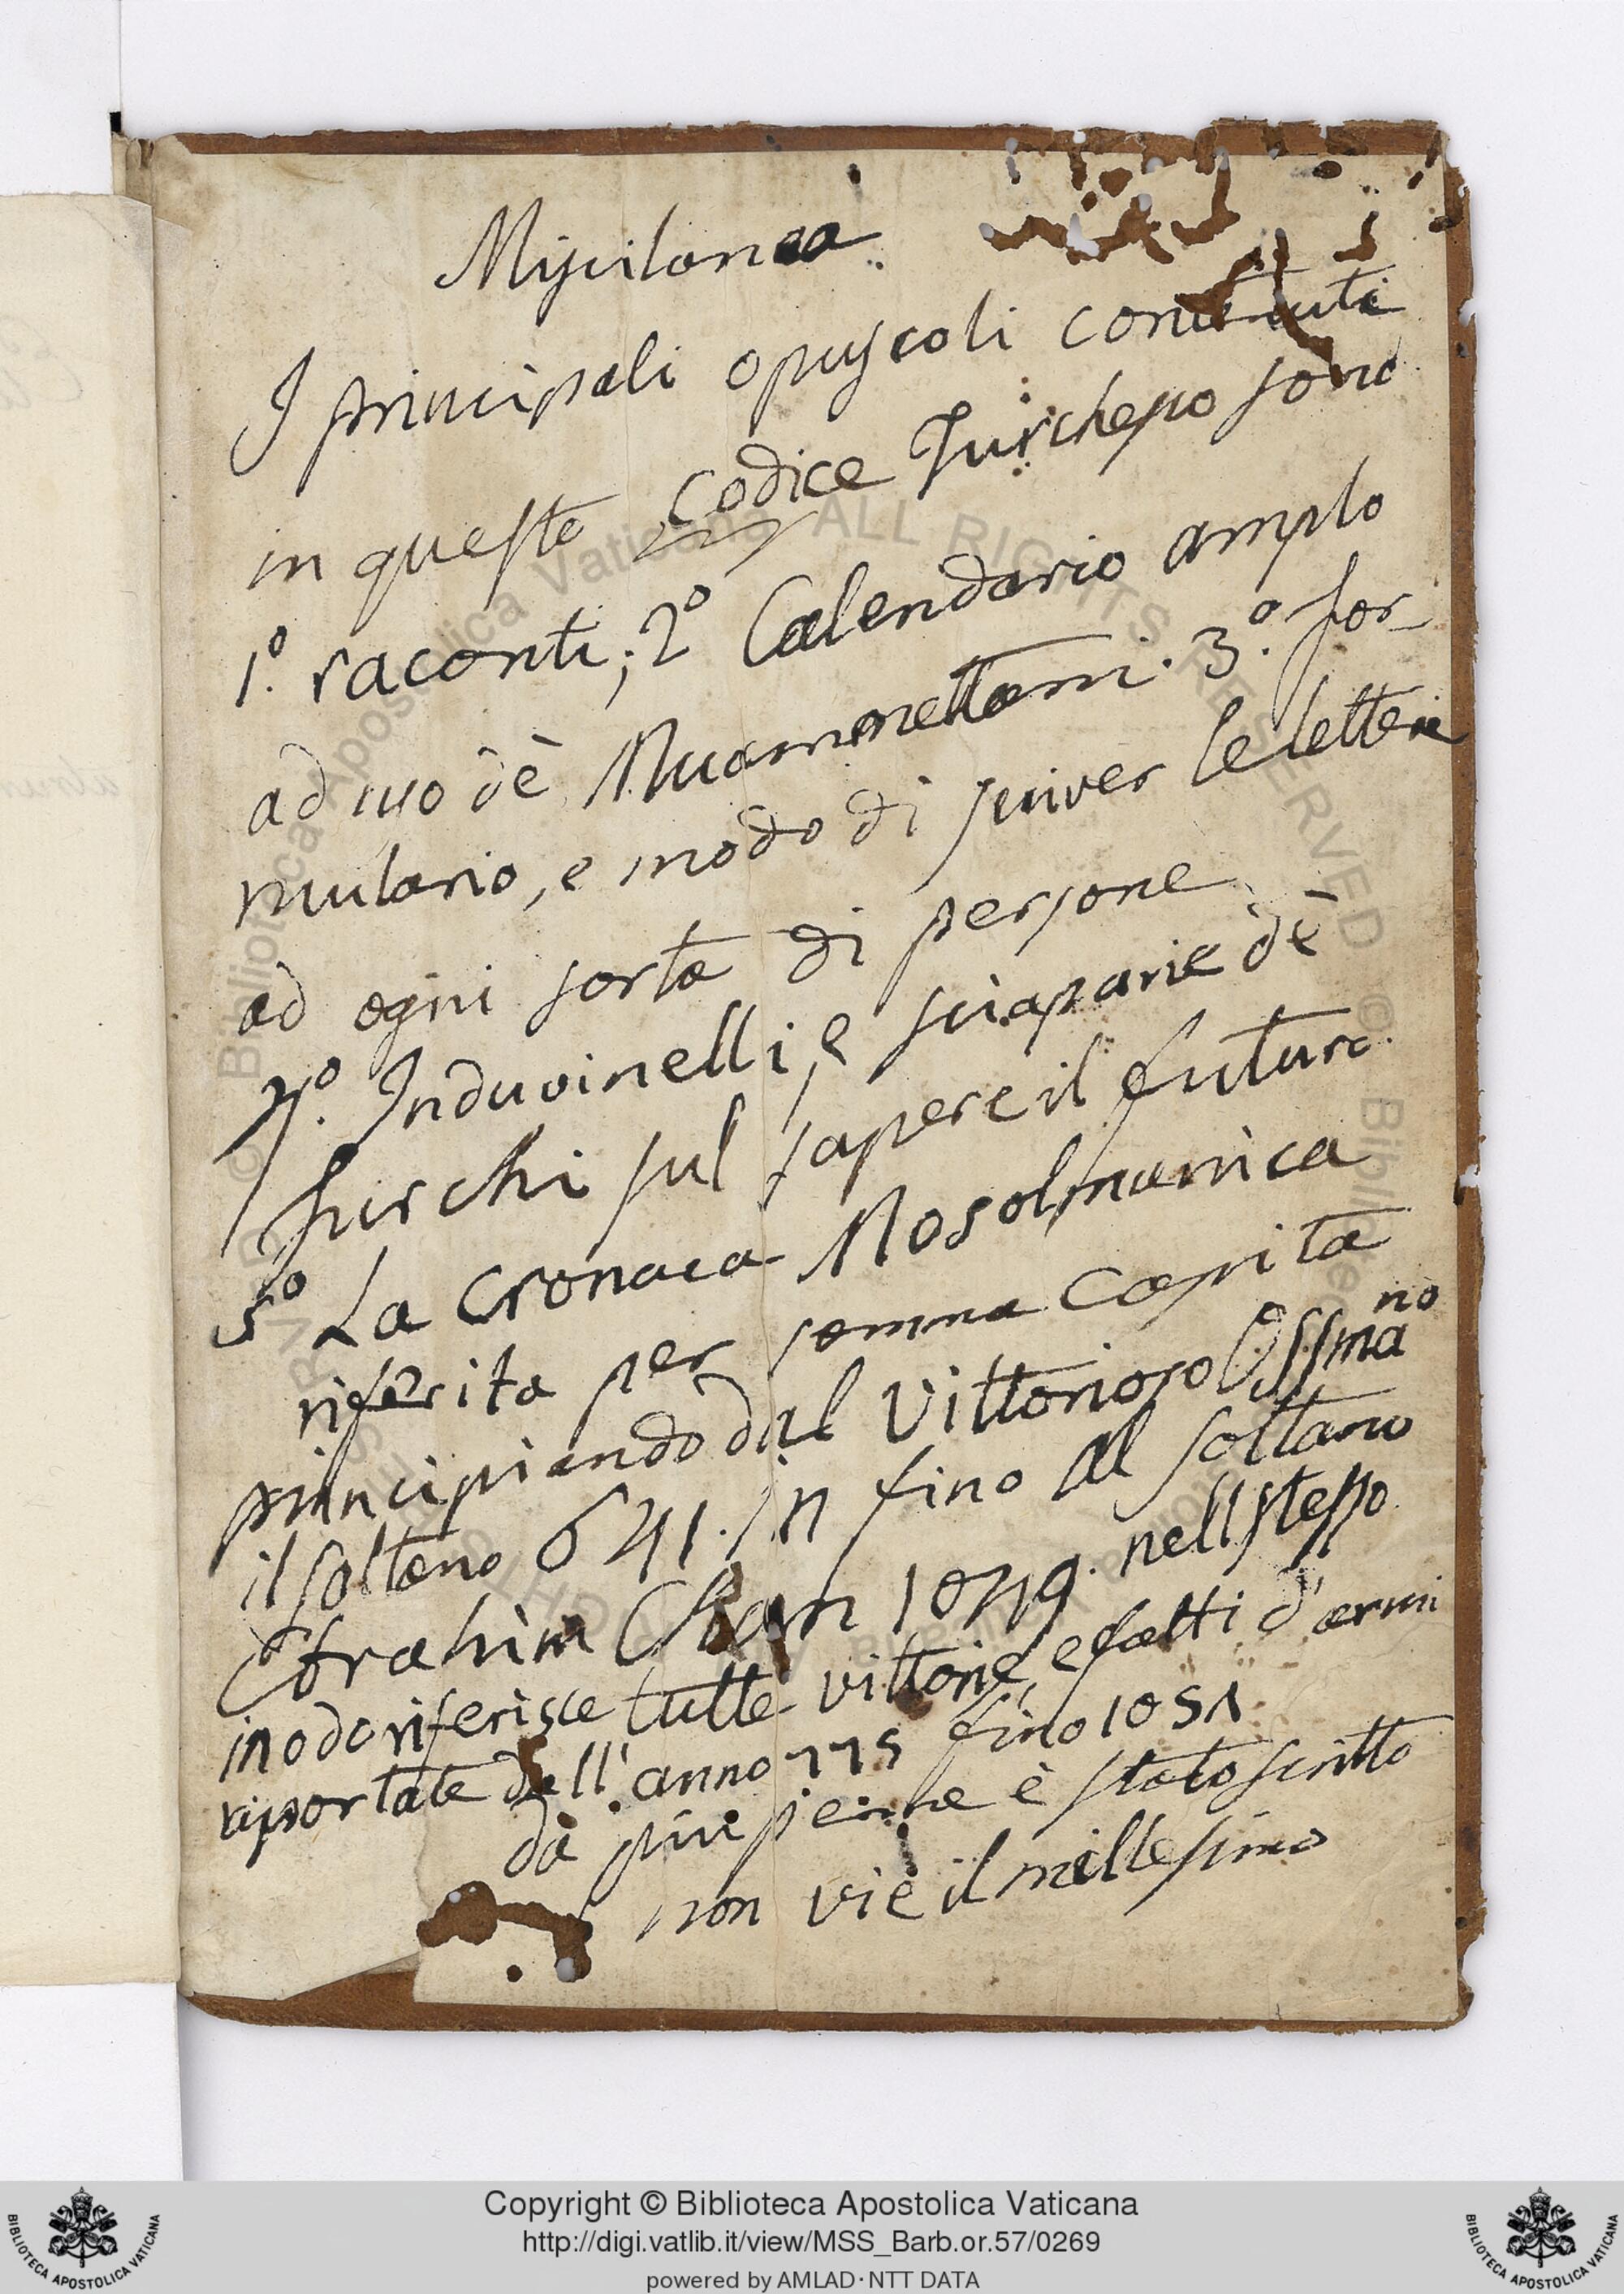 Miscilanea
I principali opuscoli contenuti
in questo Codice Turchesco sono
1.º raconti; 2º Calendario amplo
ad uso dè Muammettani. 3.º for-
mulario, e modo di scriver le lettere
ad ogni sorta di persone
4.º Induvinelli, e sciaparie dè
Turchi sul sapere il futuro.
5º La Cronaca Mosolmanica
riferita per somma Capita
principiando dal Vittorioso Ossmano
il soltano 641. in fino al soltano
Ebrahim Chan 1049. nell stesso
modo riferisce tutte vittorie, e fatti d'armi
riportate dall' anno 775 fino 1051
da piu penne è stato scritto
non vi è il millesimo
© Biblioteca Apostolica Vaticana ALL RIGHTS RESERVED
Copyright © Biblioteca Apostolica Vaticana
http://digi.vatlib.it/view/MSS_Barb.or.57/0269
powered by AMLAD · NTT DATA
BIBLIOTECA APOSTOLICA VATICANA
BIBLIOTECA APOSTOLICA VATICANA